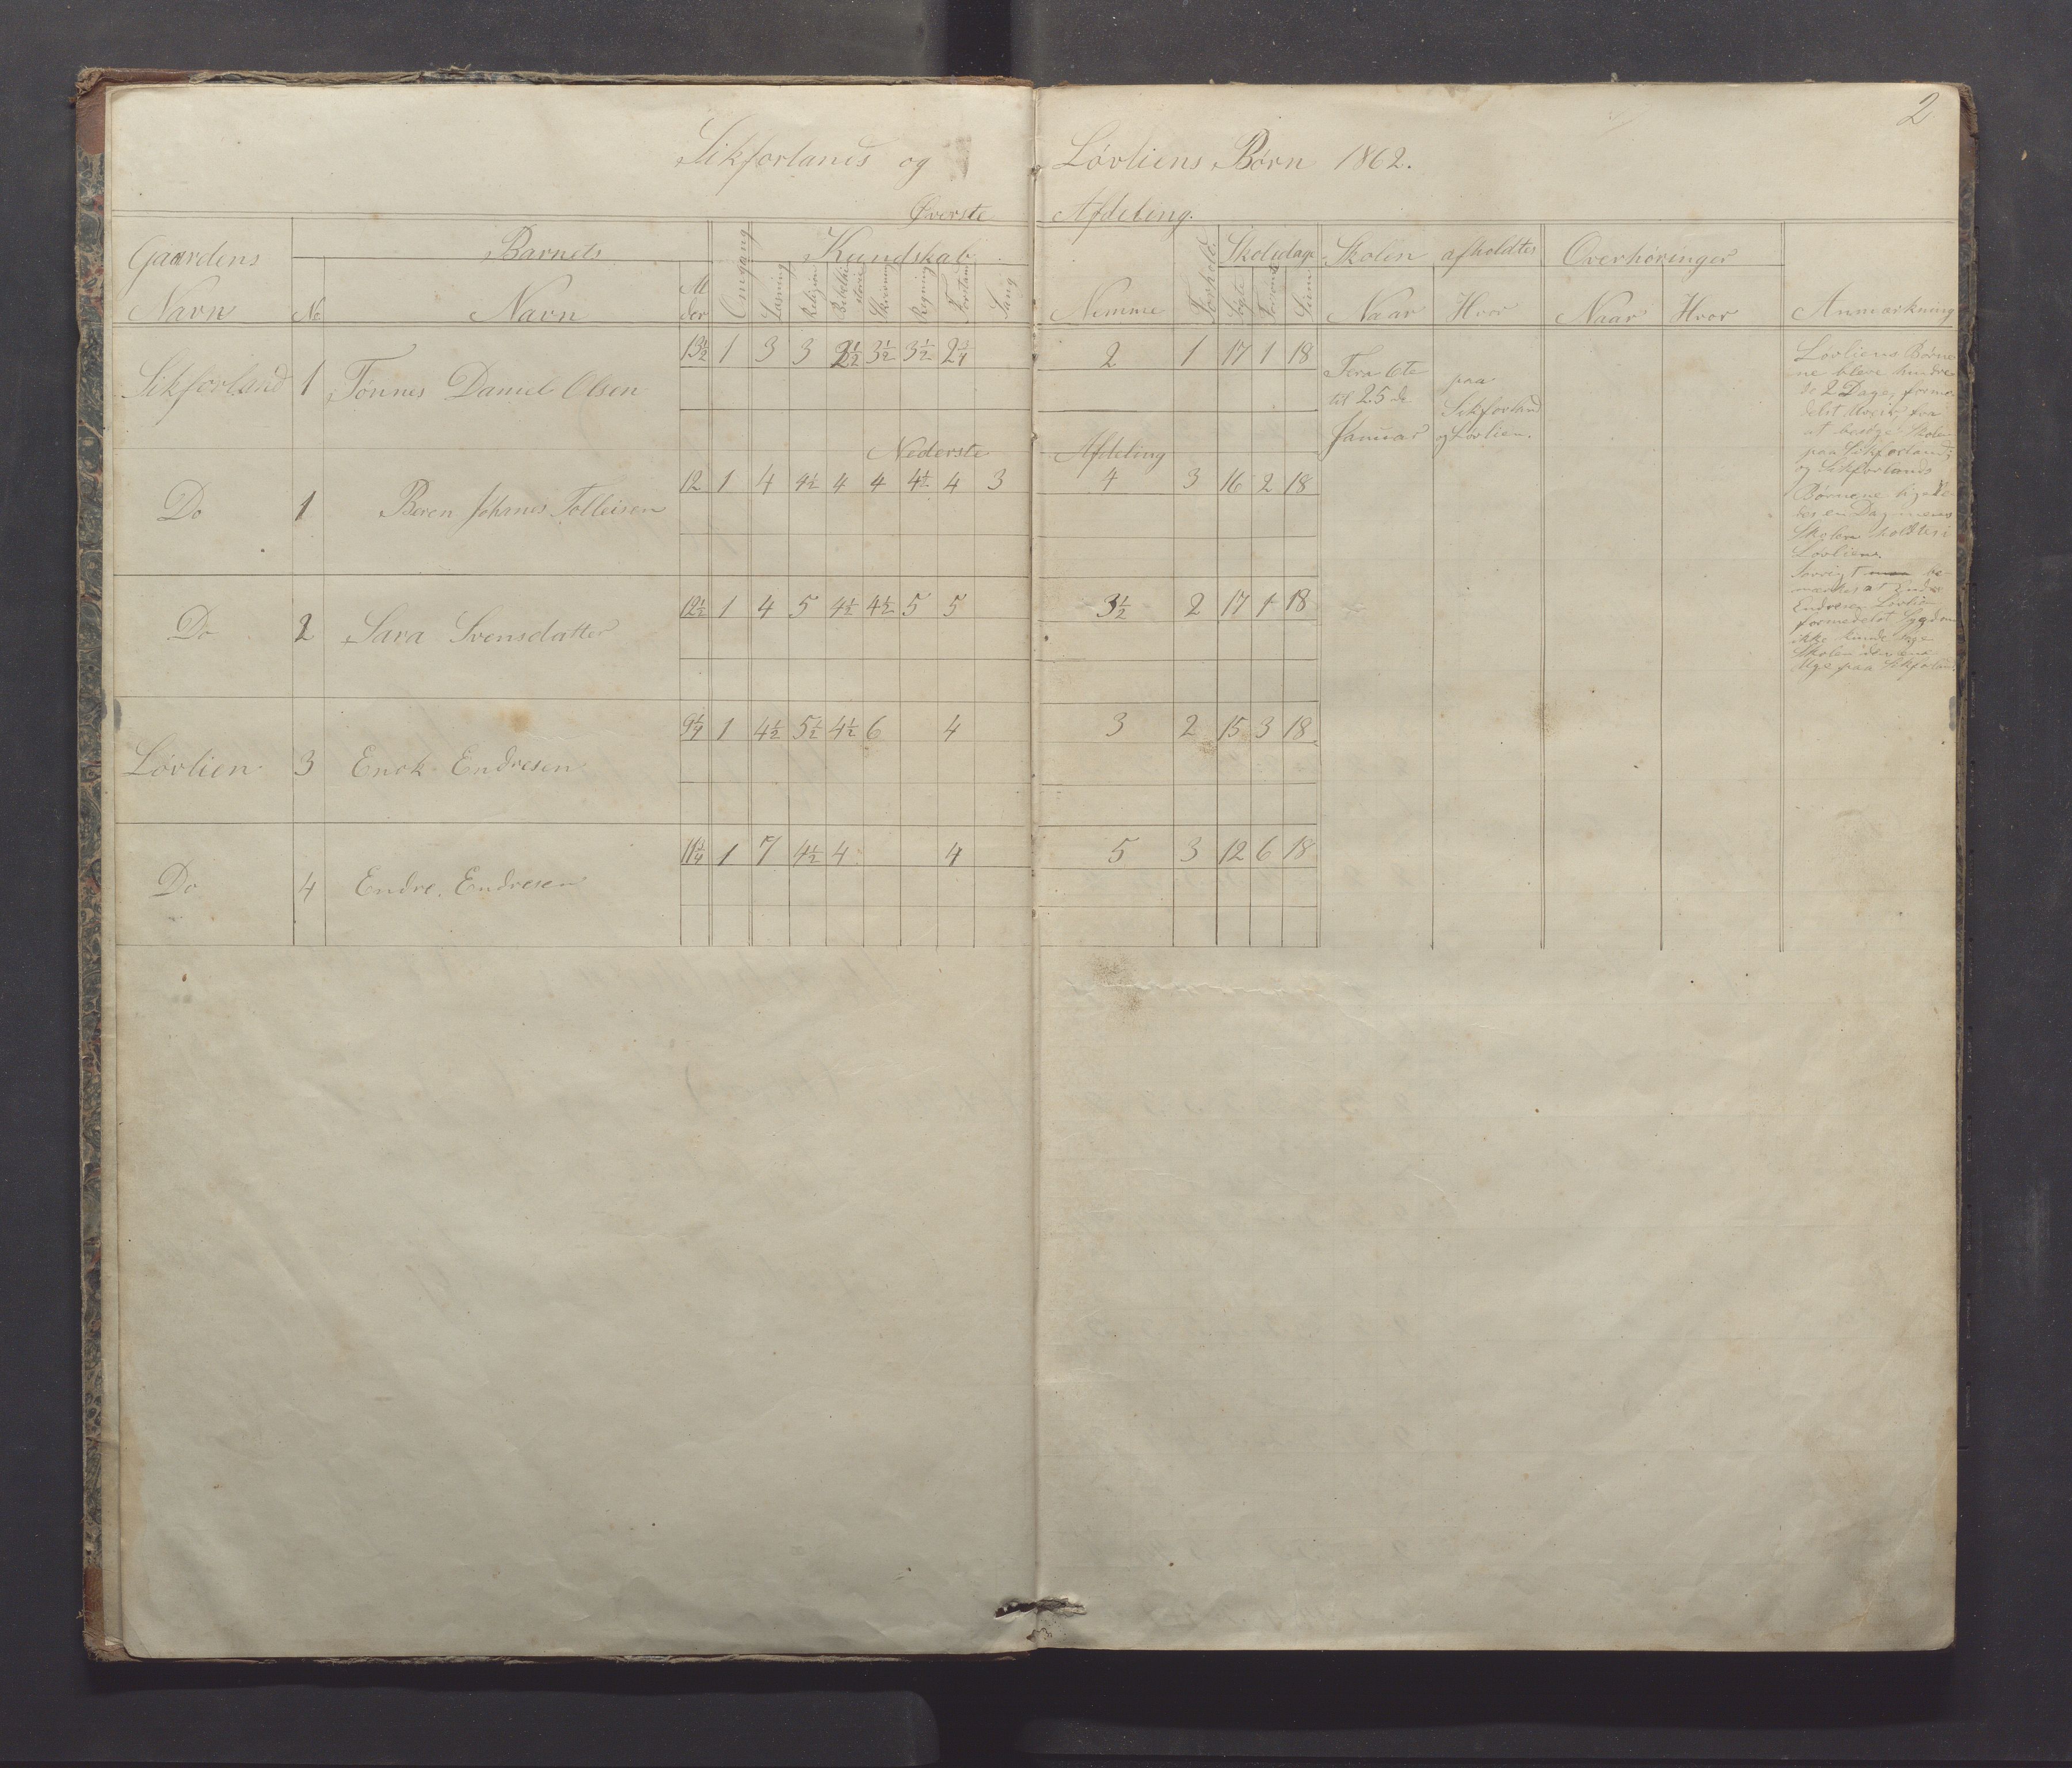 2
Sikforlands og Løvliens Børn 1862.
Øverste Afdeling.
Gaardens Navn No Barnets Navn Alder Omgang Kundskab Læsning Religion Bibelhistorie Skrivning Regning Forstand Sang Nemme Forhold Skoledage Søgte Forsømte Sum Skolen afholdtes Naar Hvor Overhøringer Naar Hvor Anmærkning
Sikforland 1 Tønnes Daniel Olsen 13½ 1 3 3 2½ 3½ 3½ 2¾ 2 1 17 1 18
Fra 6te
til 25de
Januar
paa
Sikforland
og Løvlien.
Nederste Afdeling
Do 1 Beren Johanes Tolleisen 12 1 4 4½ 4 4 4½ 4 3 4 3 16 2 18
Do 2 Sara Svensdatter 12½ 1 4 5 4½ 4½ 5 5 3½ 2 17 1 18
Løvlien 3 Enok Endresen 9¼ 1 4½ 5½ 4½ 6 4 3 2 15 3 18
Do 4 Endre Endresen 11¾ 1 7 4½ 4 4 5 3 12 6 18
Løvliens Børne
ne bleve hindre
de 2 Dage, forme
delst Uveir, fra
at besøge Skolen
paa Sikforland;
og Sikforlands
Børnene lige
des en Dag mens
Skolen holdtes i
Løvlien.
be
mærkes at Endre
Endresen Løvlien
formedelst Sygdom
ikke kunde søge
Skolen den ene
Uge paa Sikforland.